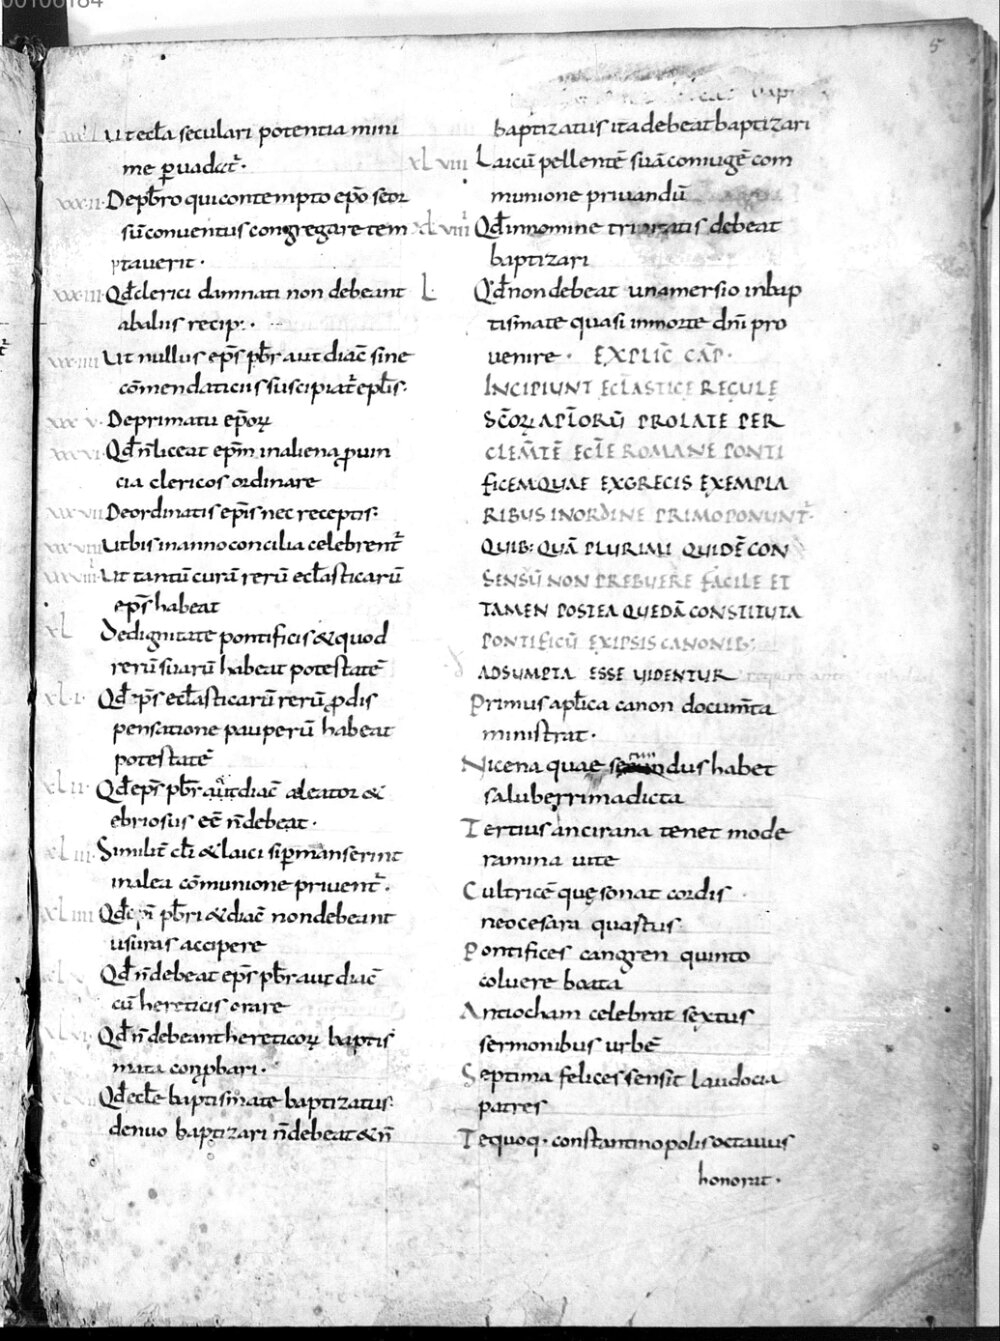 00106184
5
Ut eccl̄a seculari potentia mini
me ꝑuadat᷑·
xxxii· De pb̄ro qui contempto ep̄o seor
sū conuentus congregare tem
ptauerit·
xxxiii· Qd̄ clerici damnati non debeant
ab aliis recip̄·
xxxiiii Ut nullus ep̄s pb̄r aut diac̄ sine
cōmendaticiis suscipiat᷑ epl̄is·
xxxv· De primatu ep̄oꝝ
xxxvi· Qd̄ n̄ liceat ep̄m in aliena ꝓuin
cia clericos ordinare
xxxvii De ordinatis ep̄is nec receptis·
xxxviii Ut bis in anno concilia celebrent᷑
xxxviiii Ut tantū curā rerū eccl̄asticarū
ep̄s habeat
xL De dignitate pontificis & quod
rerū suarū habeat potestatē
xLi· Qd̄ ep̄s eccl̄asticarū rerū ꝓ dis
pensatione pauperū habeat
potestatē
xLii· Qd̄ ep̄s pb̄r aut diac̄ aleator &
ebriosus eē n̄ debeat·
xLiii· Similit̄ cl̄i & laici si ꝑmanserint
in alea cōmunione priuent᷑·
xLiiii Qd̄ ep̄i pb̄ri & diac̄ non debeant
usuras accipere
xLv Qd̄ n̄ debeat ep̄s pb̄r aut diac̄
cū hereticis orare
xLvi· Qd̄ n̄ debeant hereticoꝝ baptis
mata conꝓbari·
xLvii Qd̄ eccl̄e baptismate baptizatus
denuo baptizari n̄ debeat & n̄
bapti
baptizatus ita debeat baptizari
xLviii Laicū pellentē suā coniugē com
munione priuandū
xLviiii Qd̄ in nomine trinitatis debeat
baptizari
L Qd̄ non debeat una mersio in bap
tismate quasi in morte dn̄i pro
uenire· EXPLIC̄ CAP̄·
INCIPIUNT ECL̄ASTICE REGULE
SC̄OꝝAPL̄ORŪ PROLATE PER
CLEM̄TĒ ECL̄E ROMANE PONTI
FICEM QUAE EX GRECIS EXEMPLA
RIBUS IN ORDINE PRIMO PONUNT᷑·
QUIB: QUĀ PLURIMI QUIDĒ CON
SENSŪ NON PREBUERE FACILE ET
TAMEN POSTEA QUEDĀ CONSTITUTA
PONTIFICŪ EX IPSIS CANONIB:
ADSUMPTA ESSE UIDENTUR
Primus apl̄ica canon docum̄ta
ministrat·
Nicena quae dus habet
saluberrima dicta
Tertius ancirana tenet mode
ramina uite
Cultricē que sonat cordis
neocesaria quastus·
Pontifices cangren quinto
coluere beata
Antiocham celebrat sextus
sermonibus urbē
Septima felices sensit laudocia
patres
Te quoq· constantinopolis octauus
honorat·